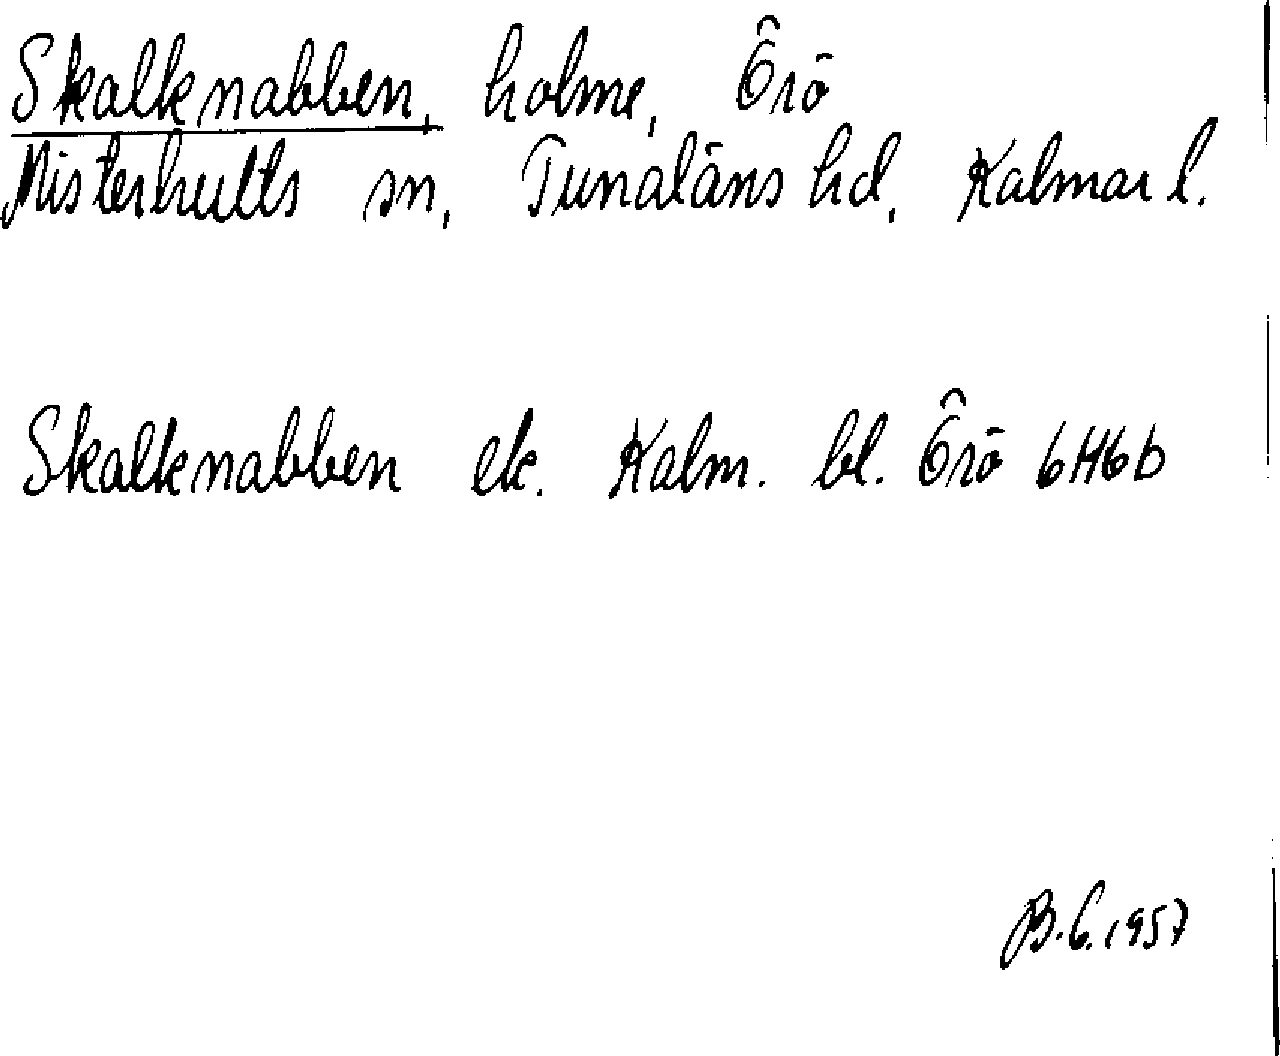 Skalknabben, holme, Örö
Misterhults sn, Tunaläns hd, Kalmar l.
Skalknabben ek. Kalm. bl. Örö 6H6b
B.G. 1957